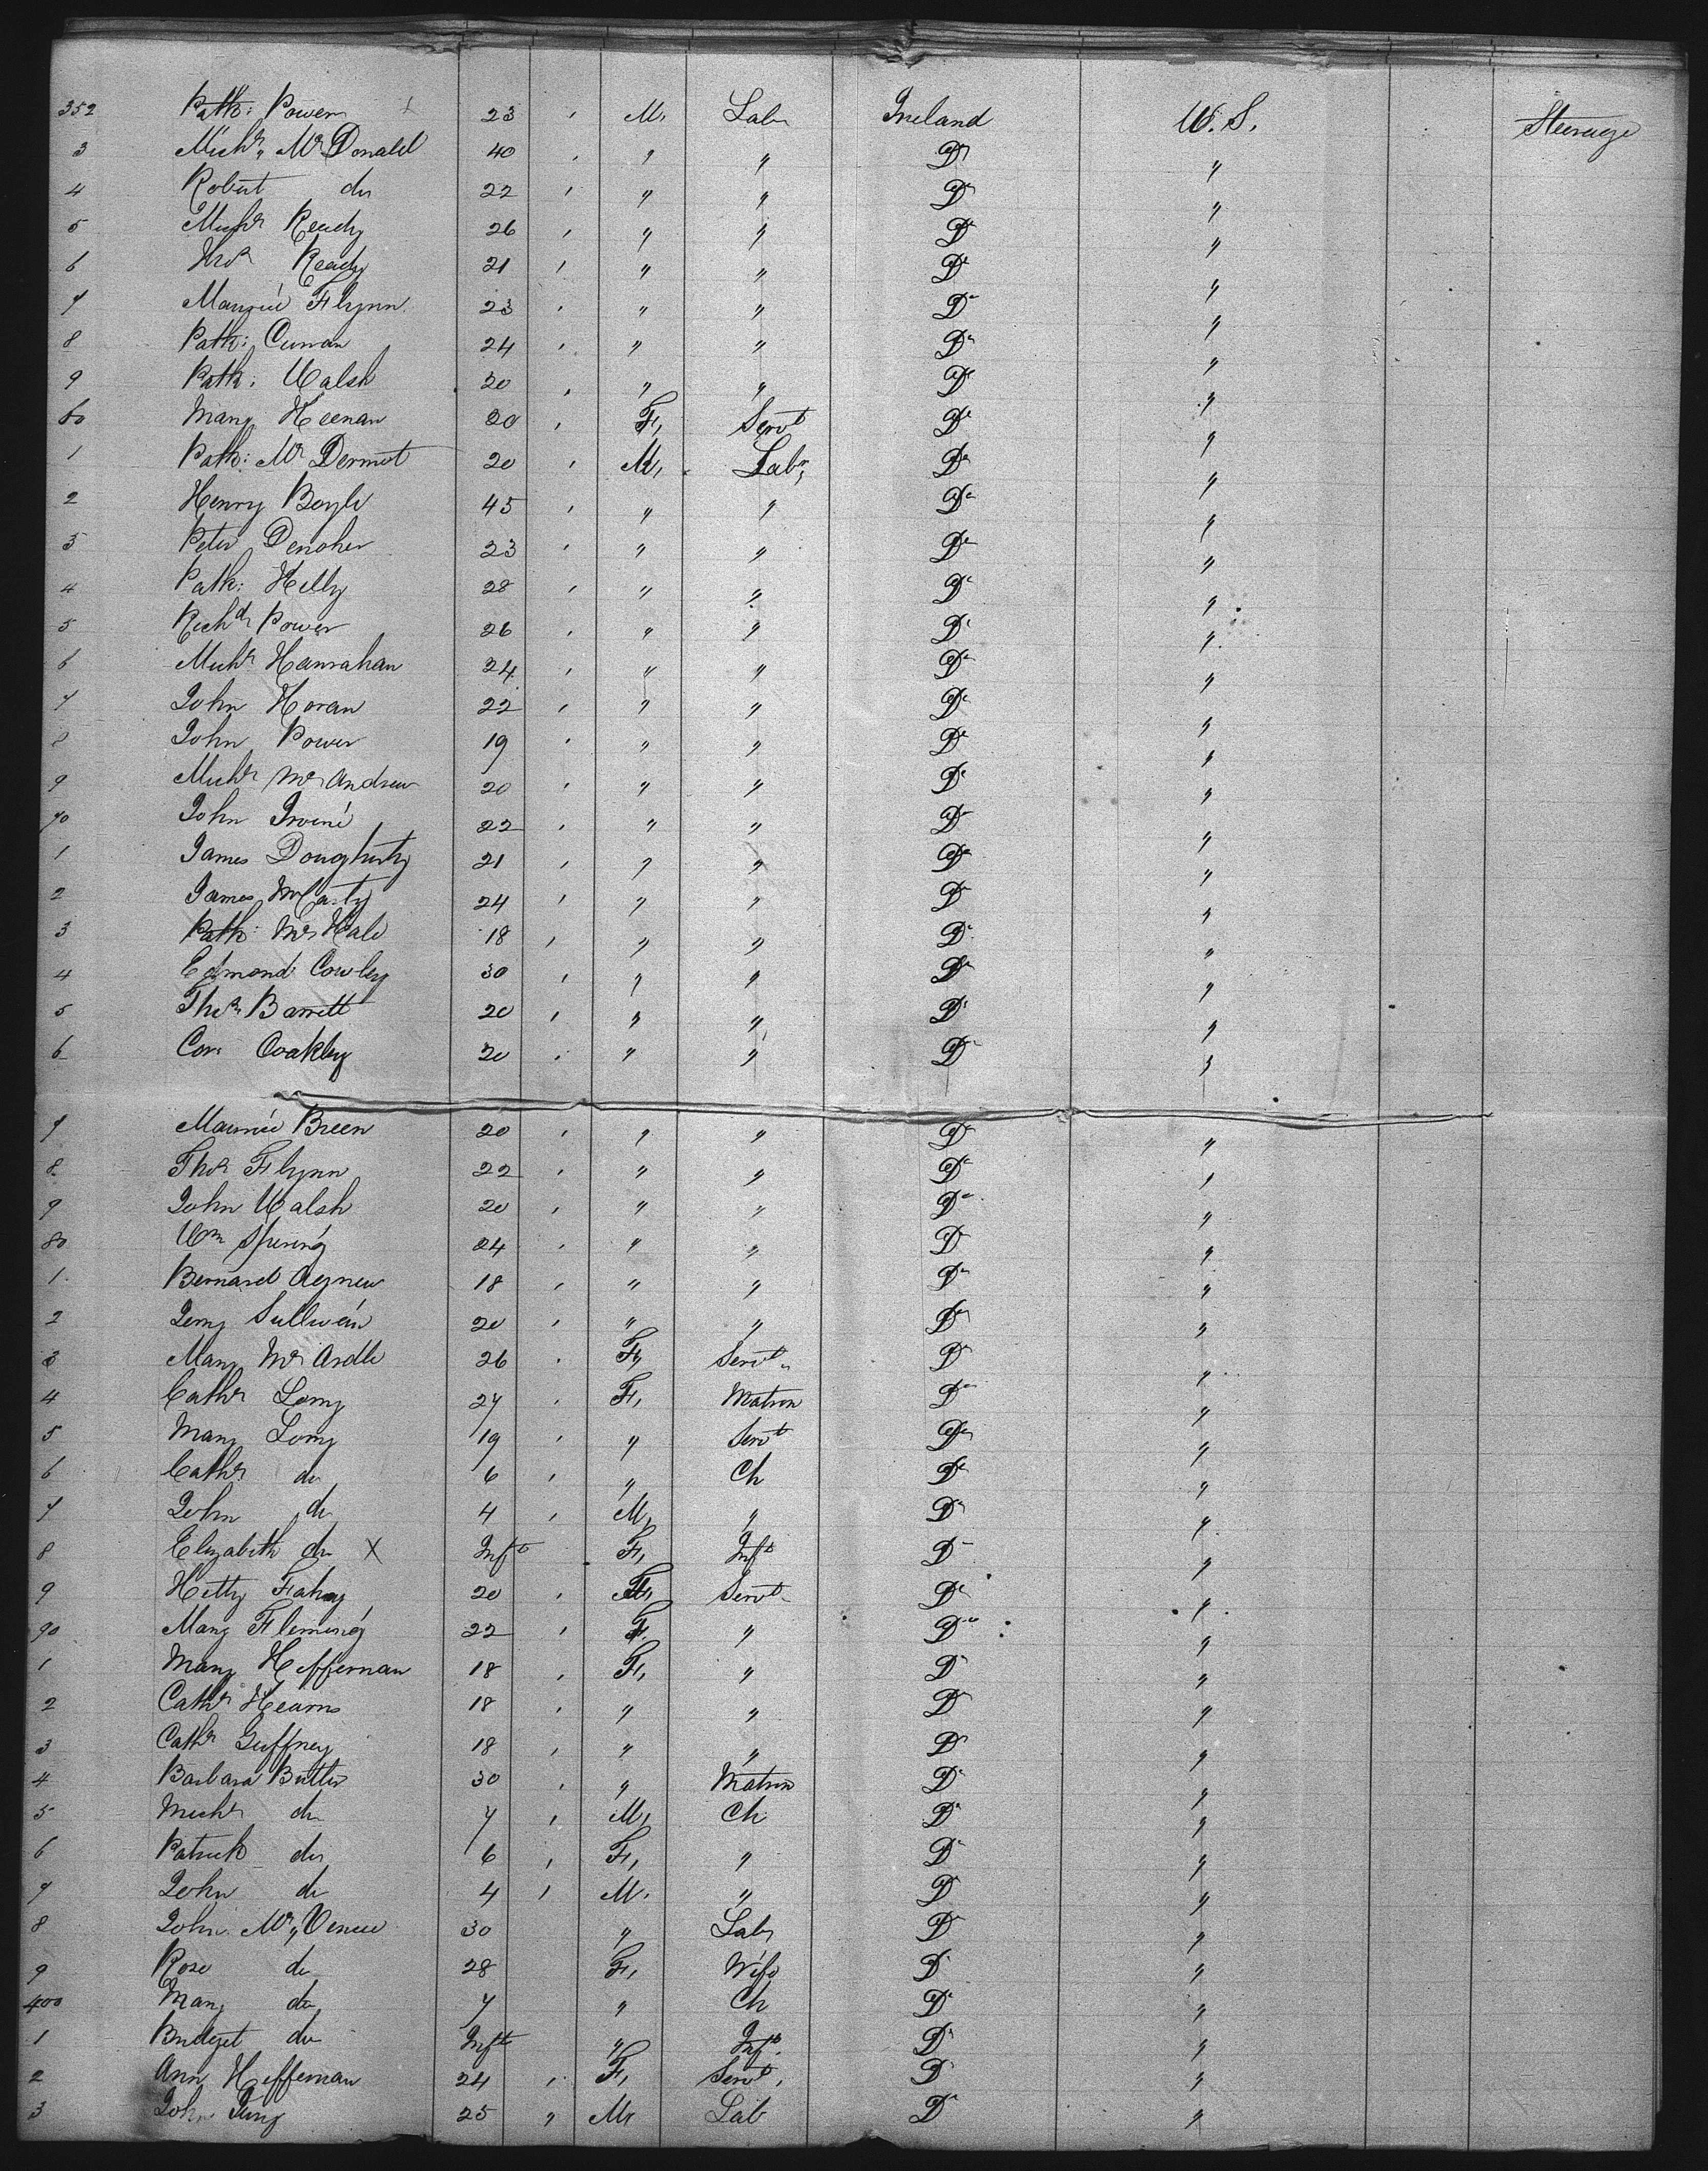 352 Patk: Power 23 ' M, Labr Ireland U.S. Steerage
3 Michl, Mc Donald 40 ' " " Do "
4 Robert do 22 ' " " Do "
5 Michl Ready 26 ' " " Do "
6 Thos Ready 21 ' " " Do "
7 Maurice Flynn 23 ' " " Do "
8 Patk: Curran 24 ' " " Do "
9 Patk: Walsh 20 ' " " Do "
60 Mary Keenan 20 ' F, Servt Do "
1 Patk: Mc Dermot 20 ' M, Labr, Do "
2 Henry Boyle 45 ' " " Do "
3 Peter Denoher 23 ' " " Do "
4 Patk: Kelly 28 ' " " Do "
5 Richd Power 26 ' " " Do "
6 Michl Hanrahan 24 ' " " Do "
7 John Horan 22 ' " " Do "
8 John Power 19 ' " " Do "
9 Michl Mc Andrew 20 ' " " Do "
70 John Irvine 22 ' " " Do "
1 James Dougherty 21 ' " " Do "
2 James McCarty 24 ' " " Do "
3 Patk: Mc Hale 18 ' " " Do "
4 Edmond: Cowley 30 ' " " Do "
5 Thos Barrett 20 ' " " Do "
6 Cor: Coakley 20 ' " " Do "
7 Maurice Breen 20 ' " " Do "
8 Thos Flynn 22 ' " " Do "
9 John Walsh 20 ' " " Do "
80 Wm Spring 24 ' " " Do "
1 Bernard Agnew 18 ' " " Do "
2 Jerry Sullivan 20 ' " " Do "
3 Mary Mc Ardle 26 ' F, Servt Do "
4 Cathr Long 27 ' F, Matron Do "
5 Mary Long 19 ' " Servt Do "
6 Cathr do 6 ' " Ch Do "
7 John do 4 ' M, " Do "
8 Elizabeth do X Inft F, Inft Do "
9 Kitty Fahey 20 ' F, Servt Do "
90 Mary Fleming 22 ' F. " Do "
1 Mary Heffernan 18 ' F, " Do "
2 Cathr Hearns 18 ' " " Do "
3 Cathr Guffney 18 ' " " Do "
4 Barbara Butler 30 ' " Matron Do "
5 Michl do 7 ' M, Ch Do "
6 Patrick do 6 ' F, " Do "
7 John do 4 ' M. " Do "
8 John Mc, 30 " Labr Do "
9 Rose do 28 F, Wife Do "
400 Mary do 7 " Ch Do "
1 Bridget do Inft " Inft. Do "
2 Ann Heffernan 24 ' F, Servt, Do "
3 John 25 " M, Lab Do "